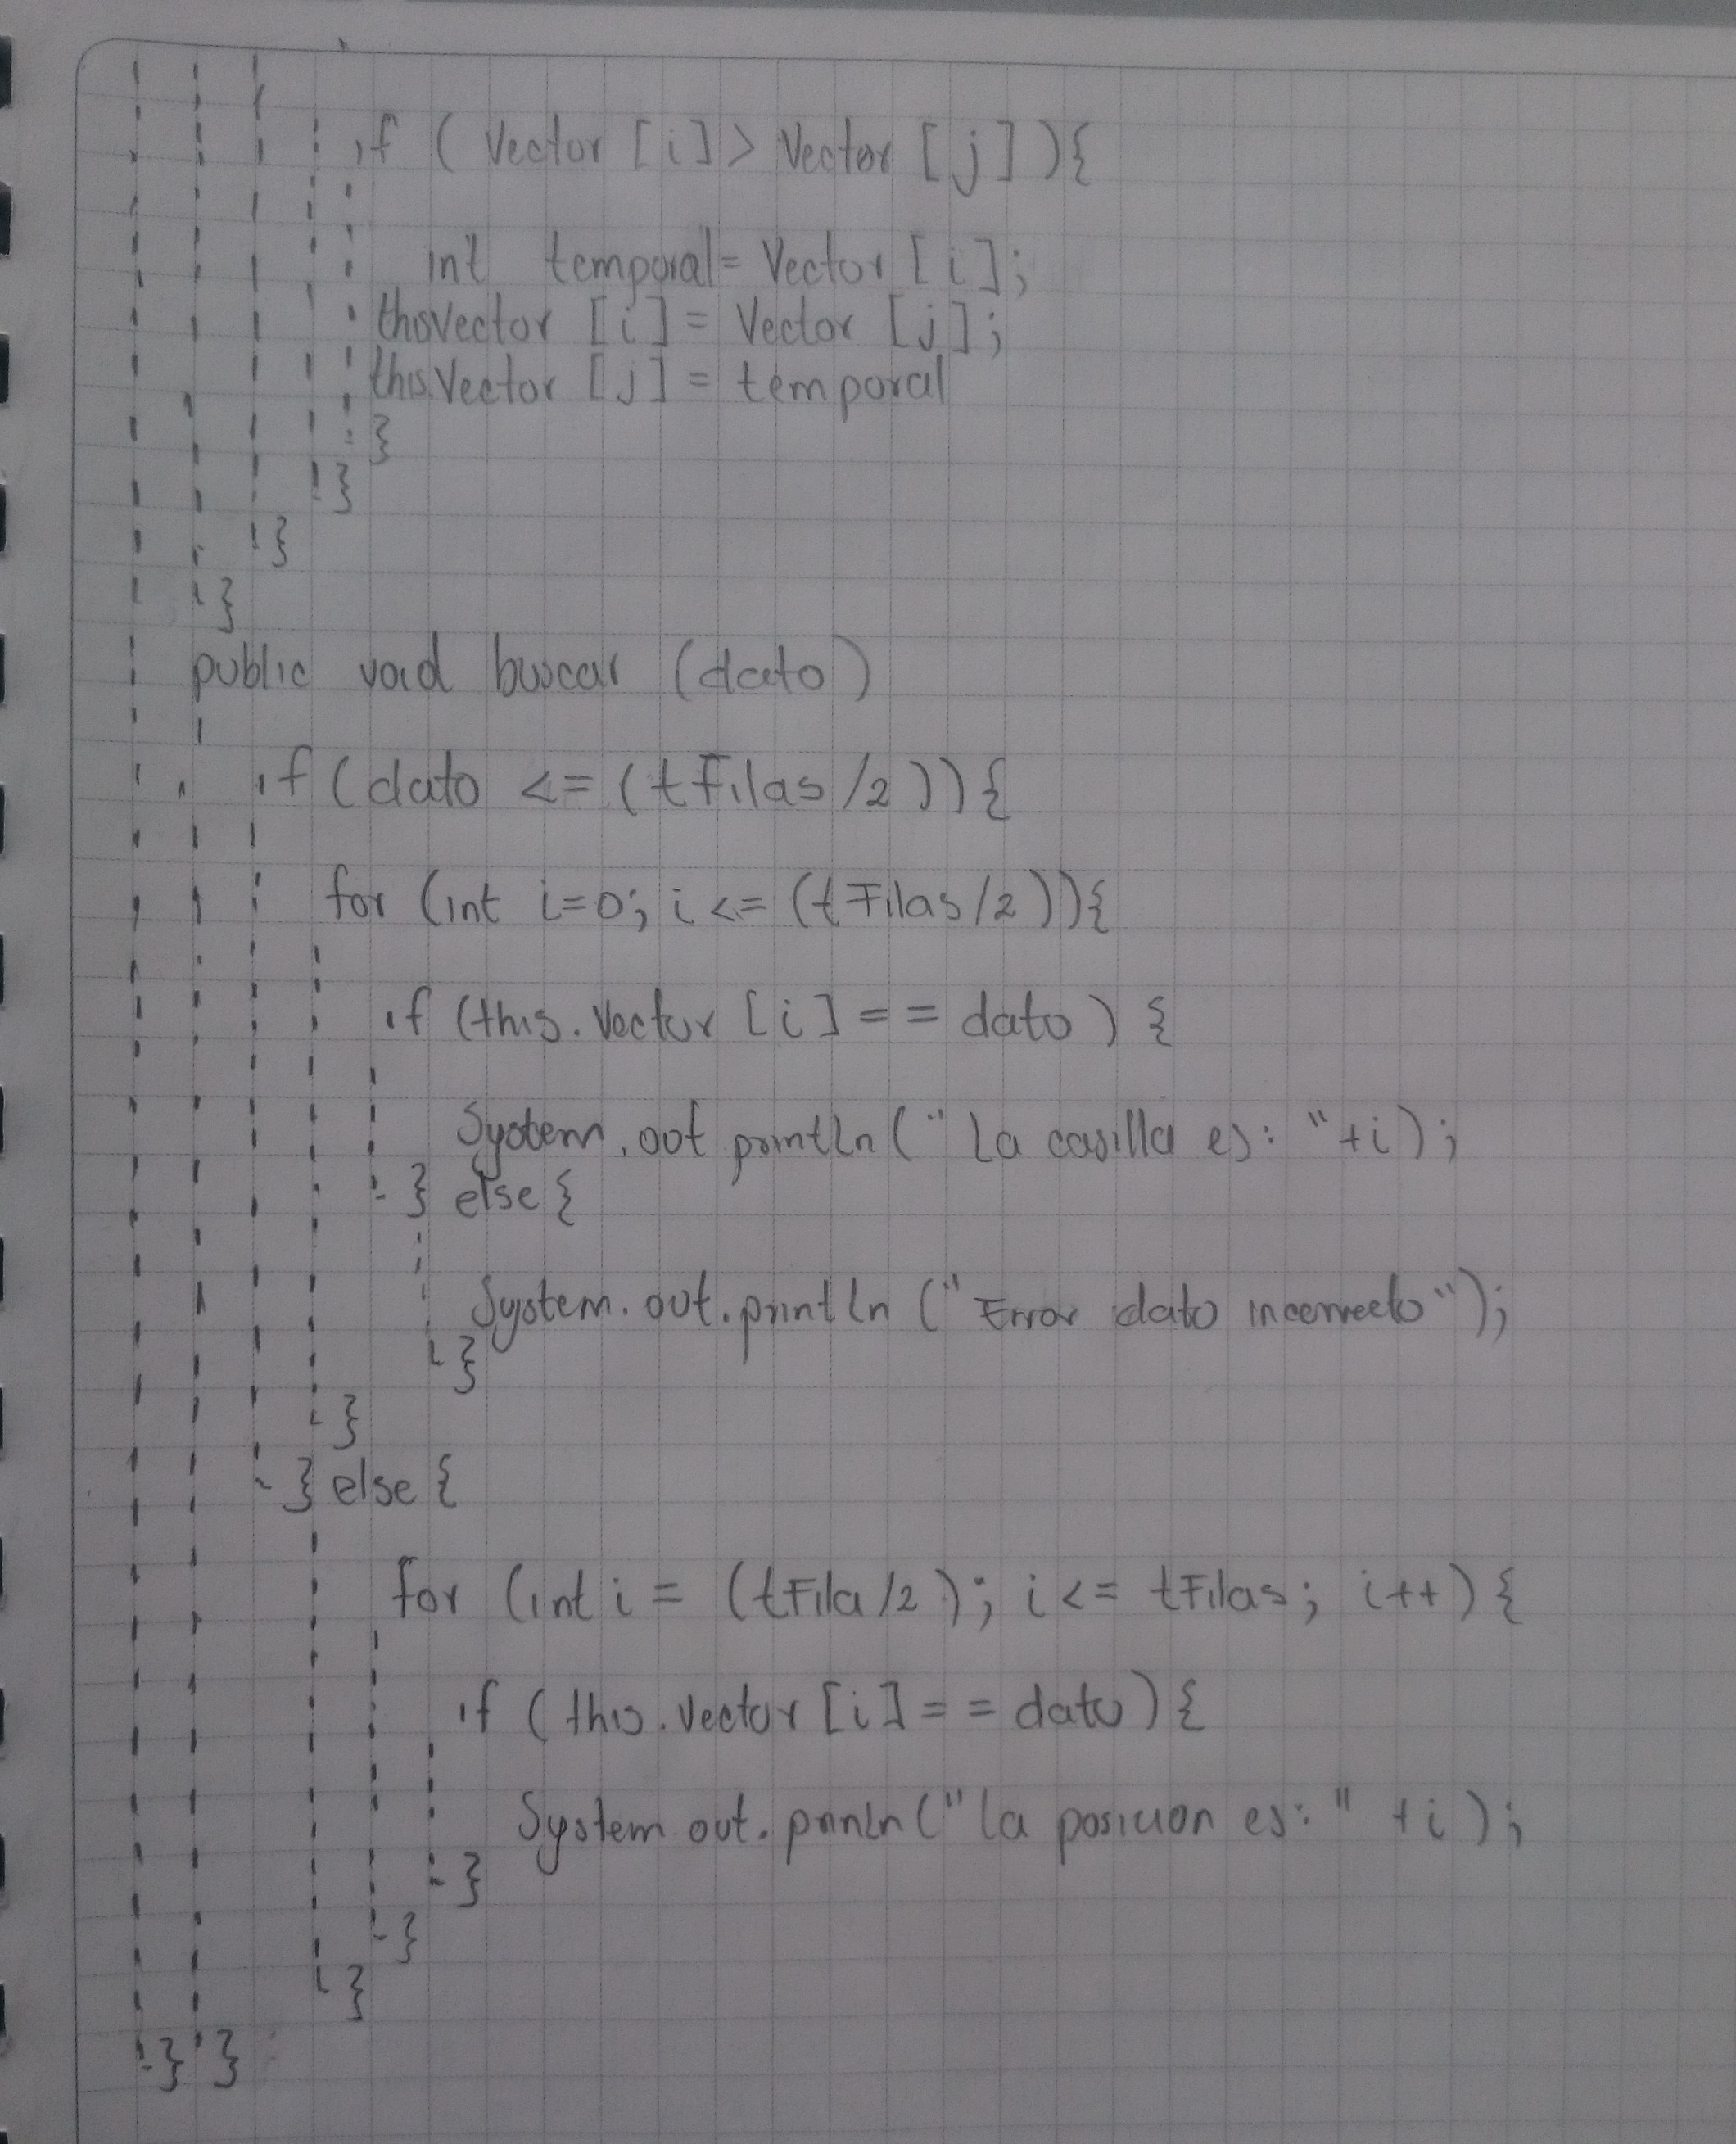 if ( Vector [i] > Vector [j] ){
int temporal = Vector [i];
thisVector [i] = Vector [j];
this.Vector [j] = temporal
}
}
}
}
public void buscar (dato)
if (dato <= (tFilas/2)){
for (int i=0; i <= (tFilas/2)){
if (this.Vector [i] == dato) {
System.out println (" La casilla es: "+i);
} else {
System.out.println ("Error dato incorrecto");
}
}
} else {
for (int i = (tFila/2); i <= tFilas; i++) {
if (this.vector [i] == dato) {
System out.prinln (" la posicion es: " +i);
}
}
}
} }